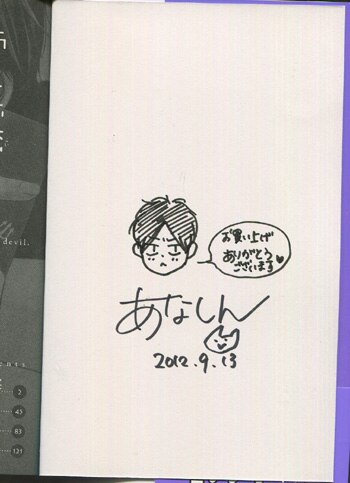 devil.
ents
2
45
83
121
お買い上げ
ありがとう
ございます♥
あなしん
2012.9.13